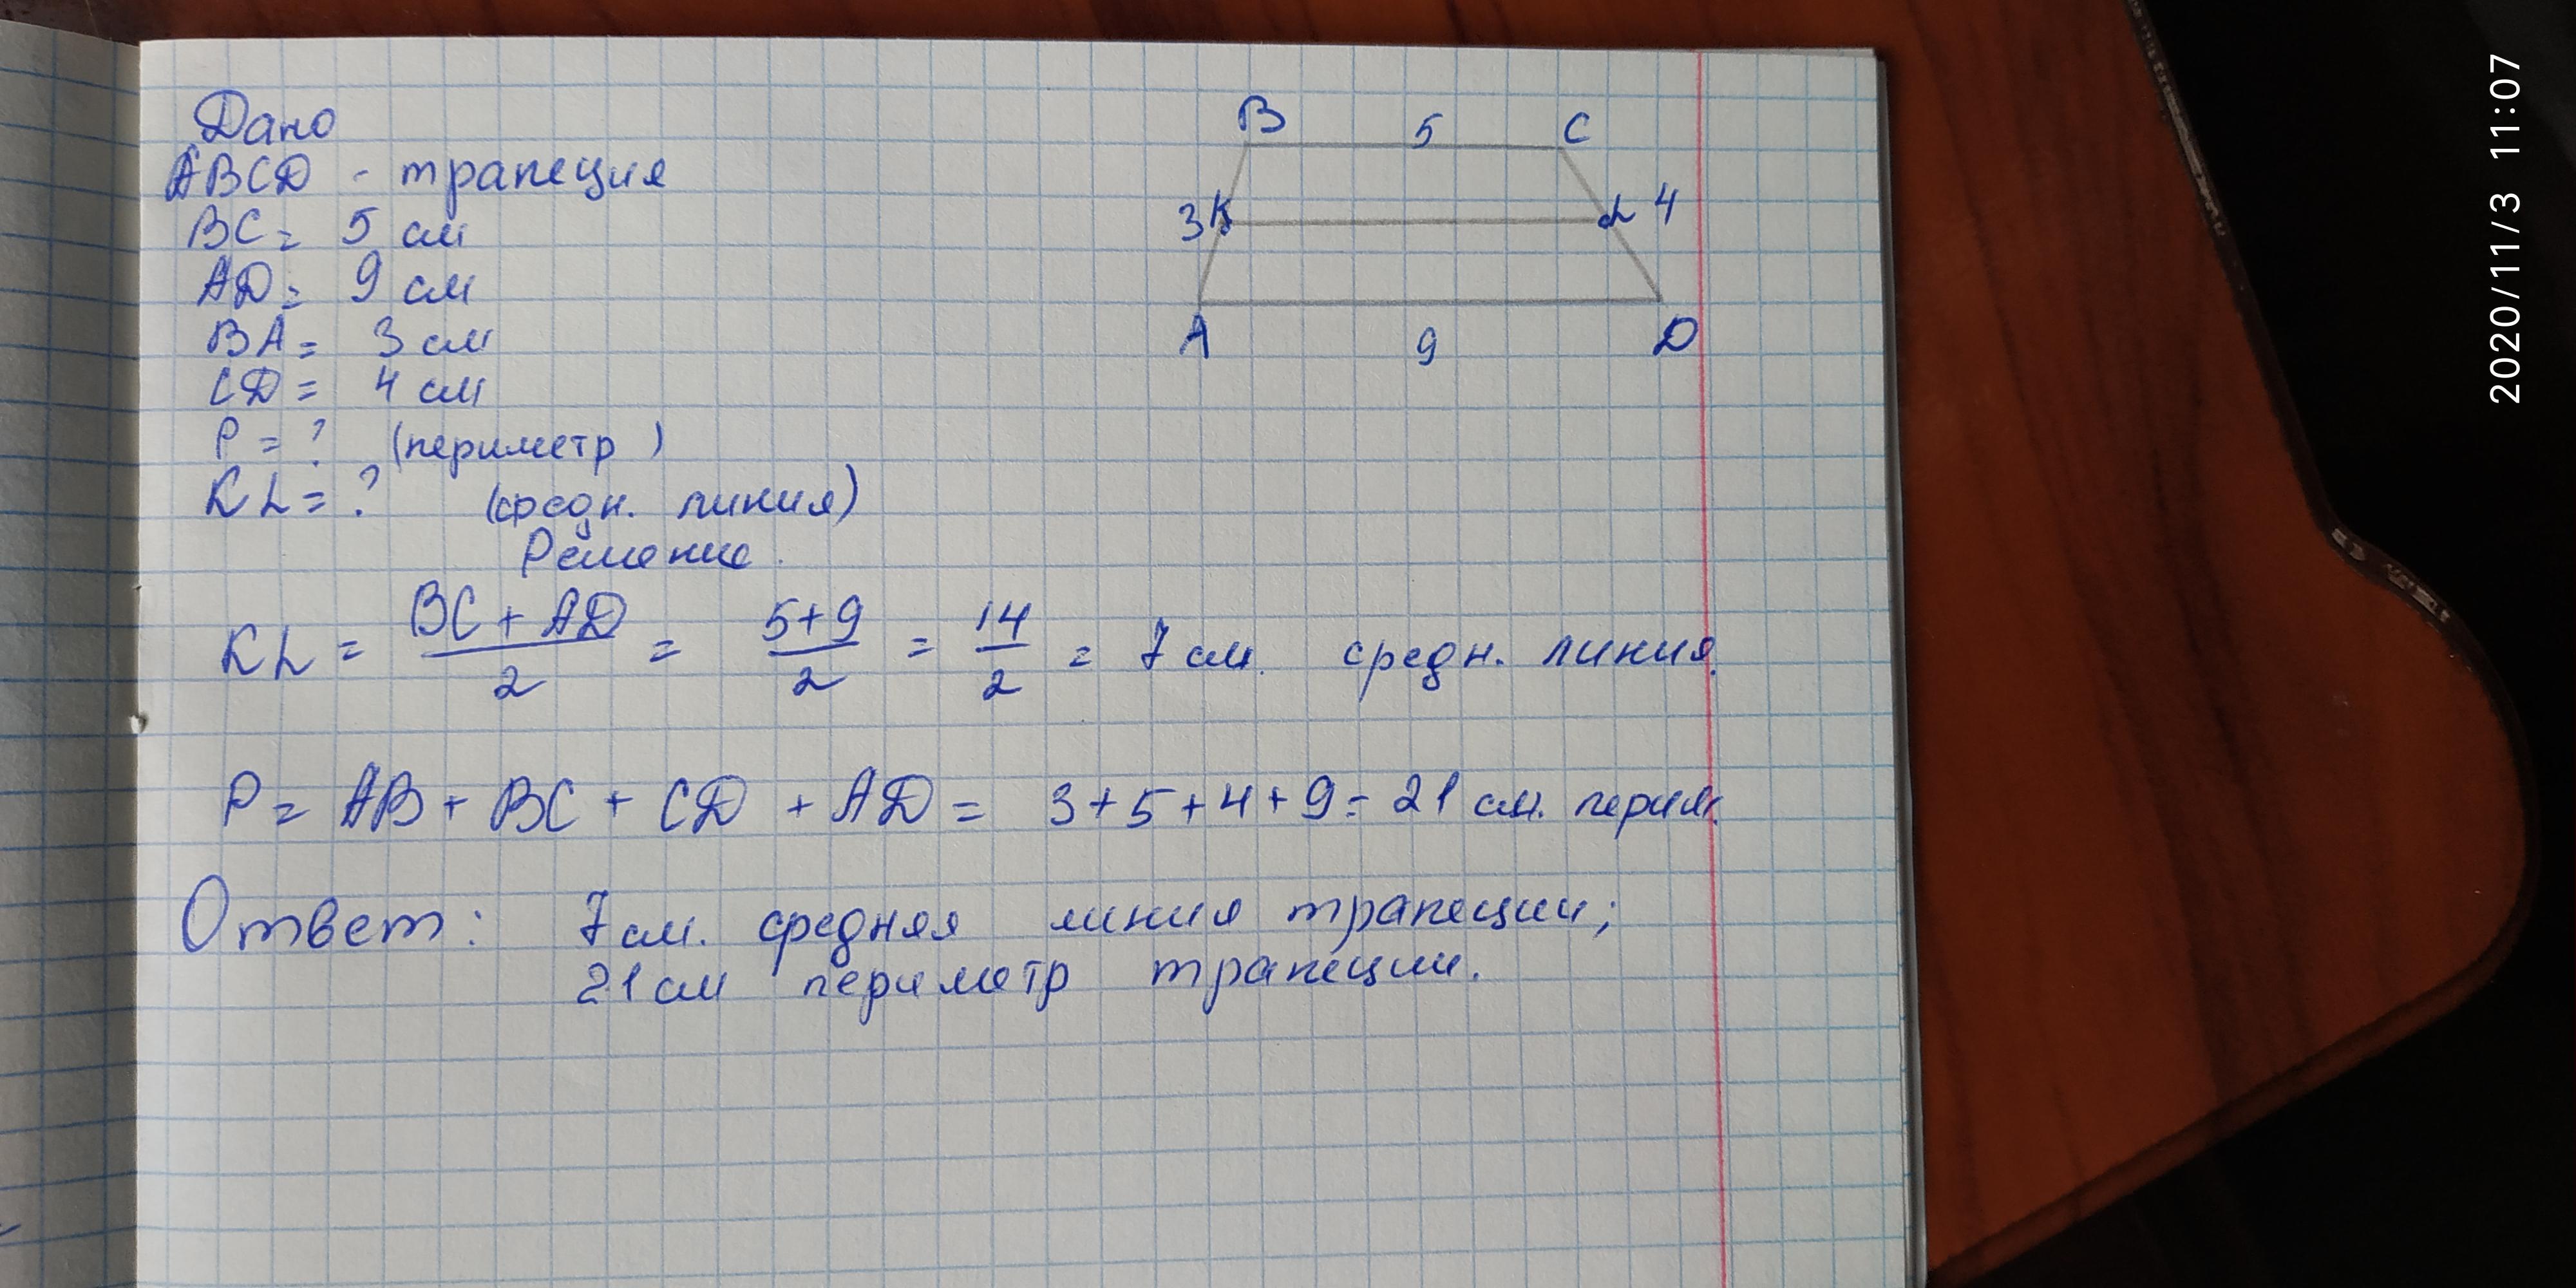 Дано
ABCD - трапеция
BC = 5 см
AD = 9 см
BA = 3 см
CD = 4 см
P = ? (периметр)
KL = ? (средн. линия)
B 5 C
3 K L 4
A 9 D
Решение.
KL = \frac{BC + AD}{2} = \frac{5+9}{2} = \frac{14}{2} = 7 см. средн. линия.
P = AB + BC + CD + AD = 3+5+4+9 = 21 см. перим.
Ответ: 7 см. средняя линия трапеции;
21 см периметр трапеции.
2020/11/3 11:07